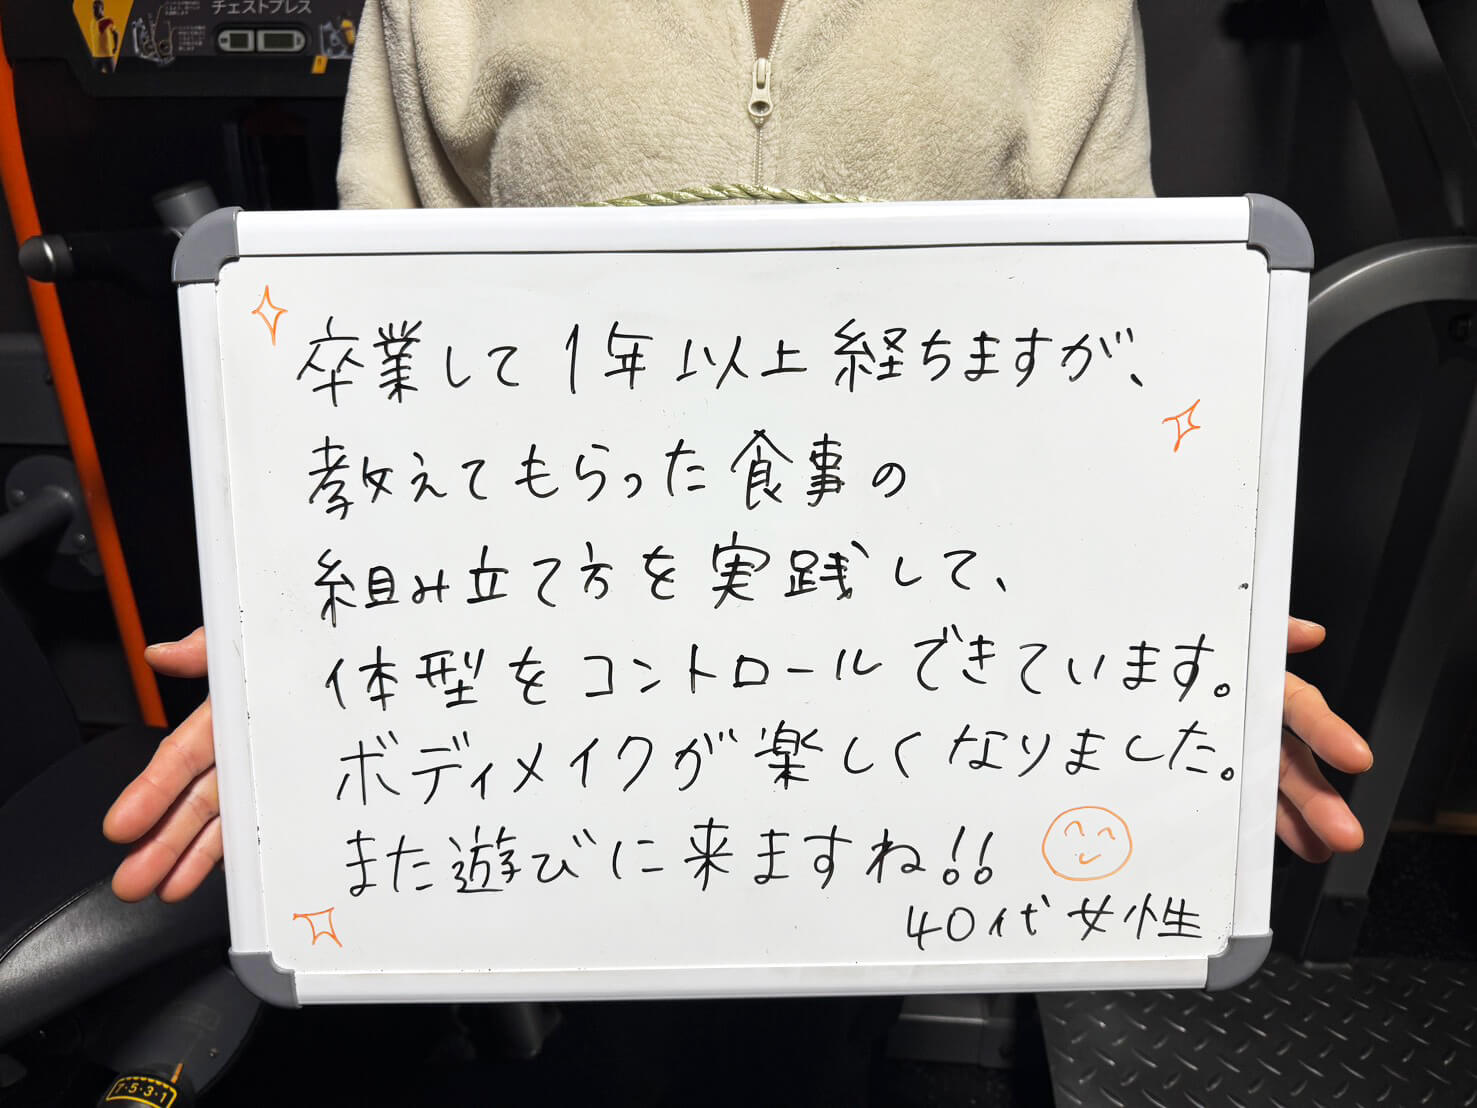 チェストプレス
卒業して1年以上経ちますが、
教えてもらった食事の
組み立て方を実践して、
体型をコントロールできています。
ボディメイクが楽しくなりました。
また遊びに来ますね!!
40代女性
7・5・3・1